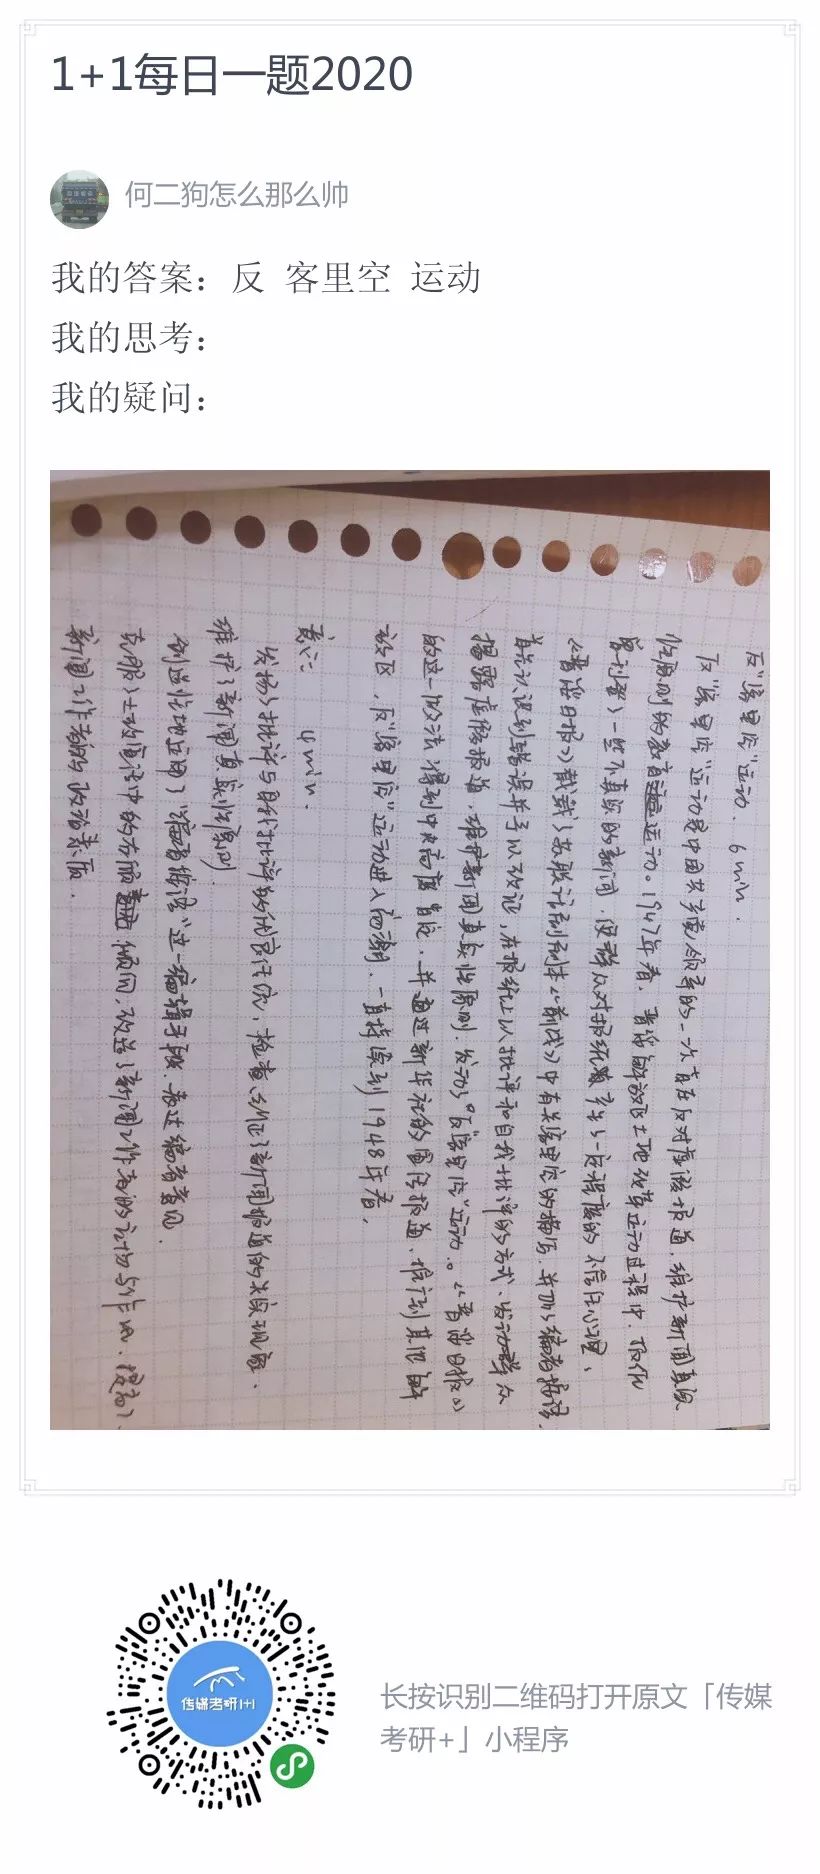 1+1每日一题2020
何二狗怎么那么帅
我的答案：反 客里空 运动
我的思考：
我的疑问：
反"客里空"运动. 6min.
反"客里空"运动是中国共产党领导的一次旨在反对虚假报道、维护新闻真实
性原则的教育运动。1947年春，晋绥解放区土地改革运动过程中，
客刊考了一些不真实的新闻，使群众对报纸产生了一定程度的不信任心理，
《晋绥日报》载了苏联话剧剧本《前线》中有关客里空的描写，并加了编者按语，
认识到错误并予以改正，在报纸上以批评和自我批评的方式、发动群众
揭露虚假报道，维护新闻真实性原则，发动了"反客里空"运动。《晋绥日报》
的这一做法得到中央高度肯定，并通过新华社的宣传报道，推广到其他解
放区，反"客里空"运动进入高潮，一直持续到1948年春，
意义： 4min.
发扬了批评与自我批评的优良作风，检查纠正了新闻报道的失实现象，
维护了新闻真实性原则.
创造性地运用了"编者按语"这一编辑手段，表达编者意见.
克服了土改宣传中的右倾倾向，改进了新闻工作者的 作风，提高了
新闻工作者的政治素质.
传媒考研1+1
长按识别二维码打开原文「传媒
考研+」小程序